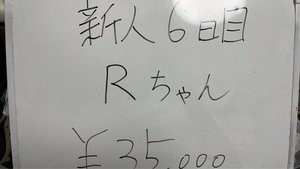 新人6日目
Rちゃん
¥35,000